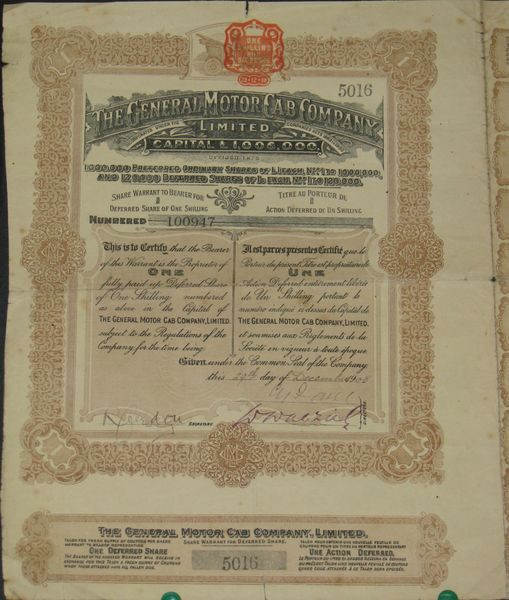 ONE
SHILLING
5016
THE GENERAL MOTOR CAB COMPANY
LIMITED
CAPITAL £1,006,000.
DIVIDED INTO
1,000,000 PREFERRED ORDINARY SHARES OF £1 EACH Nos 1 TO 1,000,000,
AND 120,000 DEFERRED SHARES OF 1/- EACH Nos 1 TO 120,000.
SHARE WARRANT TO BEARER FOR
1
DEFERRED SHARE OF ONE SHILLING
TITRE AU PORTEUR DE
1
ACTION DEFERRED DE UN SHILLING
NUMBERED 100947
This is to Certify that the Bearer
of this Warrant is the Proprietor of
ONE
fully paid up Deferred Share
of One Shilling numbered
as above in the Capital of
THE GENERAL MOTOR CAB COMPANY, LIMITED,
subject to the Regulations of the
Company for the time being.
Il est par ces présentes Certifié que le
Porteur du présent Titre est propriétaire de
UNE
Action Deferred entièrement libérée
de Un Shilling portant le
numéro indiqué ci-dessus du Capital de
THE GENERAL MOTOR CAB COMPANY, LIMITED,
et soumises aux Règlements de la
Société en vigueur à toute époque.
Given under the Common Seal of the Company
this 29th day of December 1908
SECRETARY
DIRECTORS
THE GENERAL MOTOR CAB COMPANY, LIMITED.
SHARE WARRANT FOR DEFERRED SHARE
TALON FOR FRESH SUPPLY OF COUPONS FOR SHARE
WARRANT TO BEARER REPRESENTING
ONE DEFERRED SHARE
THE BEARER OF THE ANNEXED WARRANT WILL RECEIVE IN
EXCHANGE FOR THIS TALON A FRESH SUPPLY OF COUPONS
WHEN THOSE ATTACHED HAVE ALL FALLEN DUE.
5016
UNE ACTION DEFERRED.